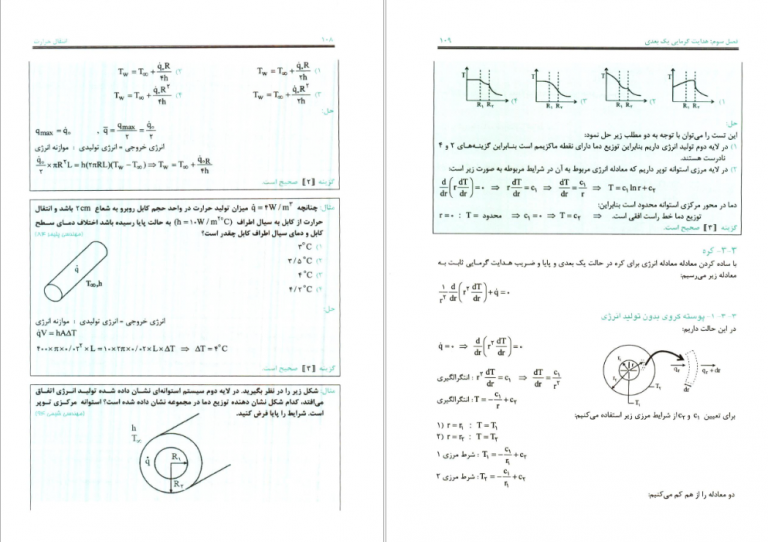 ۱۰۸
انتقال حرارت
۱) T_W = T_∞ + q̇₀R/۲h
۲) T_W = T_∞ + q̇₀R/۴h
۳) T_W = T_∞ + q̇₀R²/۲h
۴) T_W = T_∞ + q̇₀R²/۴h
حل:
q_max = q̇₀ , q̄ = q_max/۲ = q̇₀/۲
انرژی خروجی = انرژی تولیدی : موازنه انرژی
q̇₀/۲ × πR²L = h(۲πRL)(T_W − T_∞) ⇒ T_W = T_∞ + q̇₀R/۴h
گزینه [۲] صحیح است.
مثال: چنانچه q̇ = ۴W/m³ میزان تولید حرارت در واحد حجم کابل روبرو به شعاع ۲cm باشد و انتقال
حرارت از کابل به سیال اطراف (h = ۱۰W/m²°C) به حالت پایا رسیده باشد اختلاف دمای سطح
کابل و دمای سیال اطراف کابل چقدر است؟
۱) ۳°C
۲) ۳/۵°C
۳) ۴°C
۴) ۴/۲°C
q̇
T_∞,h
حل:
انرژی خروجی = انرژی تولیدی : موازنه انرژی
q̇V = hAΔT
۴۰۰×π×۰/۰۲²×L = ۱۰×۲π×۰/۰۲×L×ΔT ⇒ ΔT = ۴°C
گزینه [۳] صحیح است.
مثال: شکل زیر را در نظر بگیرید. در لایه دوم سیستم استوانه‌ای نشان داده شده تولید انرژی اتفاق
می‌افتد، کدام شکل نشان دهنده توزیع دما در مجموعه نشان داده شده است؟ استوانه مرکزی توپر
است. شرایط را پایا فرض کنید.
h
T_∞
q̇
R₁
R₂
فصل سوم: هدایت گرمایی یک بعدی
۱۰۹
T R₁ R₂ (۱
T R₁ R₂ (۲
T R₁ R₂ (۳
T R₁ R₂ (۴
حل:
این تست را می‌توان با توجه به دو مطلب زیر حل نمود:
۱) در لایه دوم تولید انرژی داریم بنابراین توزیع دما دارای نقطه ماکزیمم است بنابراین گزینه‌های ۲ و ۴
نادرست هستند.
۲) در لایه مرزی استوانه توپر داریم که معادله انرژی مربوط به آن در شرایط مربوطه به صورت زیر است:
d/dr(r dT/dr) = ۰ ⇒ r dT/dr = c₁ ⇒ dT/dr = c₁/r ⇒ T = C₁ ln r + c₂
دما در محور مرکزی استوانه محدود است بنابراین:
r = ۰ : T = محدود ⇒ c₁ = ۰ ⇒ T = c₂ ⇒ توزیع دما خط راست افقی است.
گزینه [۳] صحیح است.
۳-۳- کره
با ساده کردن معادله معادله انرژی برای کره در حالت یک بعدی و پایا و ضریب هدایت گرمایی ثابت به
معادله زیر می‌رسیم:
۱/r² d/dr(r² dT/dr) + q̇ = ۰
۳-۳-۱- پوسته کروی بدون تولید انرژی
در این حالت داریم:
q̇ = ۰ ⇒ d/dr(r² dT/dr) = ۰
انتگرالگیری : r² dT/dr = c₁ ⇒ dT/dr = c₁/r²
انتگرالگیری : T = −c₁/r + c₂
r₁
T₁
T₂
q_r
q_r+dr
dr
برای تعیین c₁ و c₂ از شرایط مرزی زیر استفاده می‌کنیم:
۱) r = r₁ : T = T₁
۲) r = r₂ : T = T₂
شرط مرزی ۱ : T₁ = −c₁/r₁ + c₂
شرط مرزی ۲ : T₂ = −c₁/r₂ + c₂
دو معادله را از هم کم می‌کنیم: